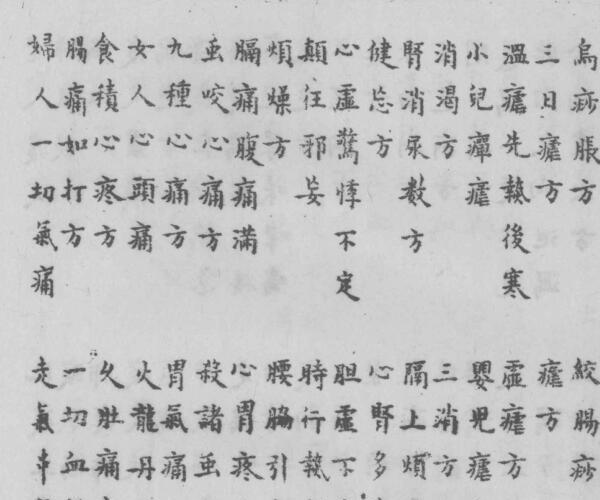 烏痧脹方 絞腸痧
三日瘧方 瘧方
溫瘧先熱後寒 虛瘧方
小兒癉瘧 嬰兒瘧
消渴方 三消方
腎消尿數方 隔上煩
健忘方 心腎多
心虛驚悸不定 胆虛不
顛狂邪妄 時行熱
煩燥方 腰脇引
膈痛腹痛滿 心胃疼
虫咬心痛方 殺諸虫
九種心痛方 胃氣痛
女人心頭痛 火龍丹
食積心疼方 久肚痛
腸痛如打方 一切血
婦人一切氣痛 走氣